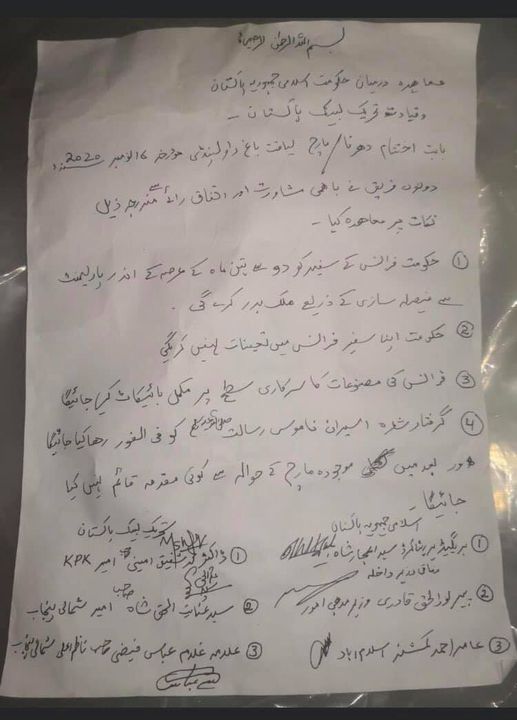 بسم اللہ الرحمن الرحیم
معاہدہ درمیان حکومت اسلامی جمہوریہ پاکستان
و قیادت تحریک لبیک پاکستان -
بابت اختتام دھرنا/مارچ لیاقت باغ راولپنڈی مورخہ 16 نومبر 2020ء
دونوں فریق نے باہمی مشاورت اور اتفاق رائے سے مندرجہ ذیل
نکات پر معاہدہ کیا -
① حکومت فرانس کے سفیر کو دو سے تین ماہ کے عرصہ کے اندر پارلیمنٹ
سے فیصلہ سازی کے ذریعے ملک بدر کرے گی -
② حکومت اپنا سفیر فرانس میں تعینات نہیں کریگی
③ فرانس کی مصنوعات کا سرکاری سطح پر مکمل بائیکاٹ کیا جائیگا
④ گرفتار شدہ اسیران ناموس رسالت صلی اللہ علیہ وسلم کو فی الفور رھا کیا جائیگا
اور بعد میں موجودہ مارچ کے حوالہ سے کوئی مقدمہ قائم نہیں کیا
جائیگا -
اسلامی جمہوریہ پاکستان
تحریک لبیک پاکستان
① بریگیڈیر ریٹائرڈ سید اعجاز شاہ
وفاقی وزیر داخلہ
① ڈاکٹر شفیق امینی صاحب امیر KPK
② پیر نورالحق قادری وزیر مذہبی امور
② سید عنایت الحق شاہ صاحب امیر شمالی پنجاب
③ عامر احمد کمشنر اسلام آباد
③ علامہ غلام عباس فیضی صاحب ناظم اعلی شمالی پنجاب